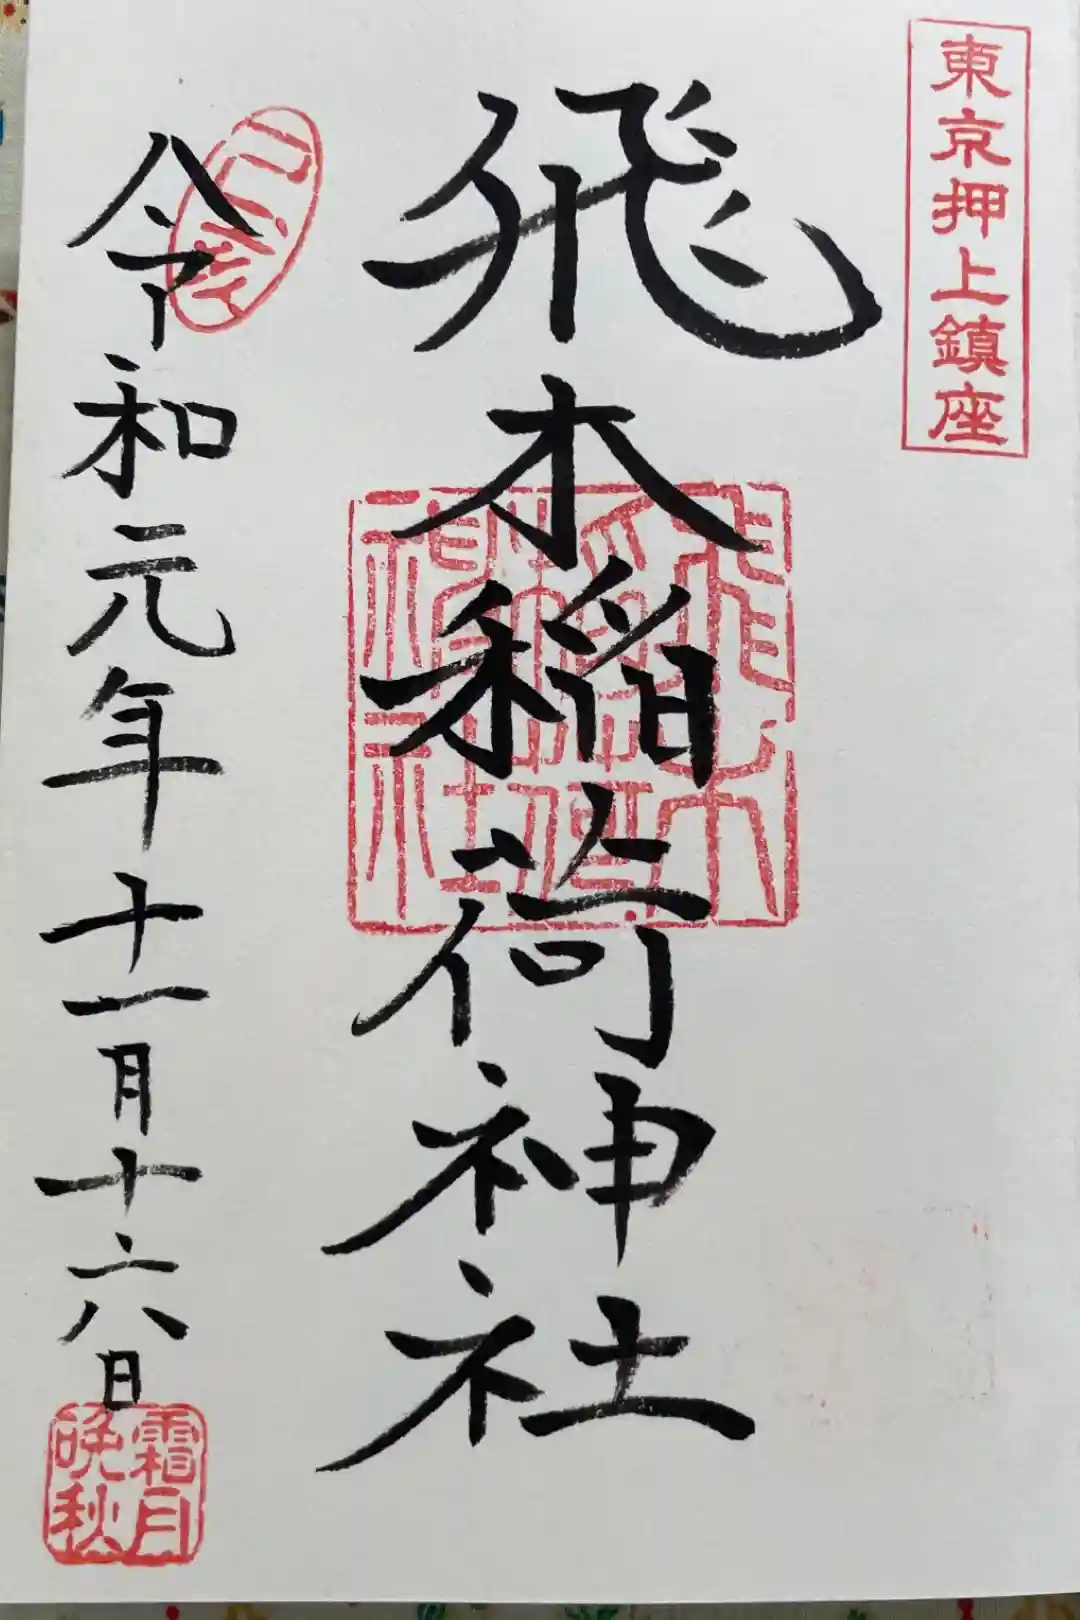 東京押上鎮座
飛木稲荷神社
飛木稲荷神社
令和元年十一月十六日
霜月
晩秋